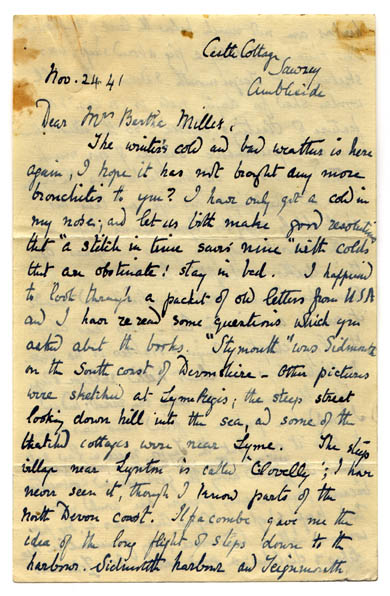 Castle Cottage
Sawrey
Ambleside
Nov. 24. 41
Dear Mrs Bertha Miller,
The winter's cold and bad weather is here
again, I hope it has not brought any more
bronchitis to you? I have only got a cold in
my nose; and let us both make good resolutions
that "a stitch in time saves nine" with colds
that are obstinate! stay in bed. I happened
to look through a packet of old letters from USA
and I have re read some questions which you
asked about the books. "Stymouth" was Sidmouth
on the South coast of Devonshire — Other pictures
were sketched at Lyme Regis; the steep street
looking down hill into the sea, and some of the
thatched cottages were near Lyme. The steep
village near Lynton is called "Clovelly"; I have
never seen it, though I know parts of the
North Devon coast. Ilfracombe gave me the
idea of the long flight of steps down to the
harbour. Sidmouth harbour and Teignmouth